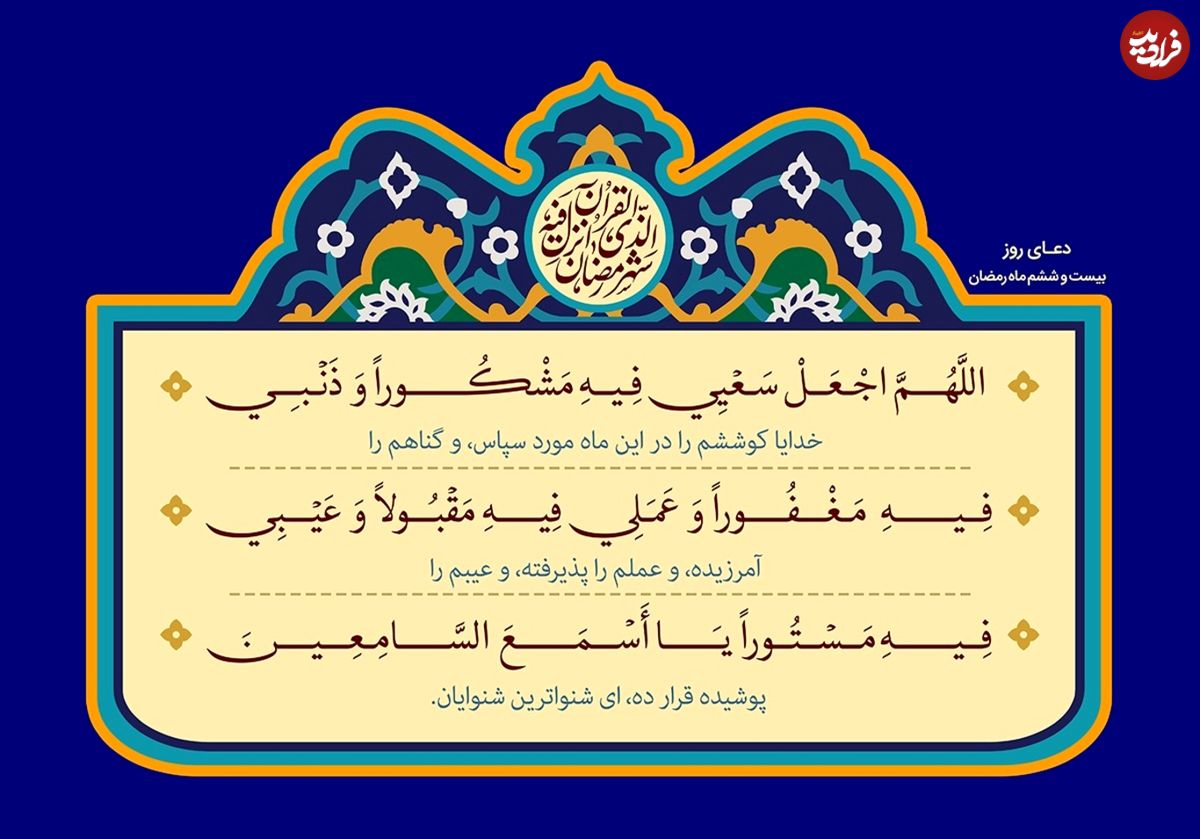 فرادید
اخبار
الَّذِی اُنْزِلَ فِیهِ القُرآن
شَهْرُ رَمَضَان
دعـای روز
بیست و ششم ماه رمضان
اللَّهُمَّ اجْعَلْ سَعْيِي فِيهِ مَشْكُوراً وَ ذَنْبِي
خدایا کوششم را در این ماه مورد سپاس، و گناهم را
فِيهِ مَغْفُوراً وَ عَمَلِي فِيهِ مَقْبُولاً وَ عَيْبِي
آمرزیده، و عملم را پذیرفته، و عیبم را
فِيهِ مَسْتُوراً يَا أَسْمَعَ السَّامِعِينَ
پوشیده قرار ده، ای شنواترین شنوایان.